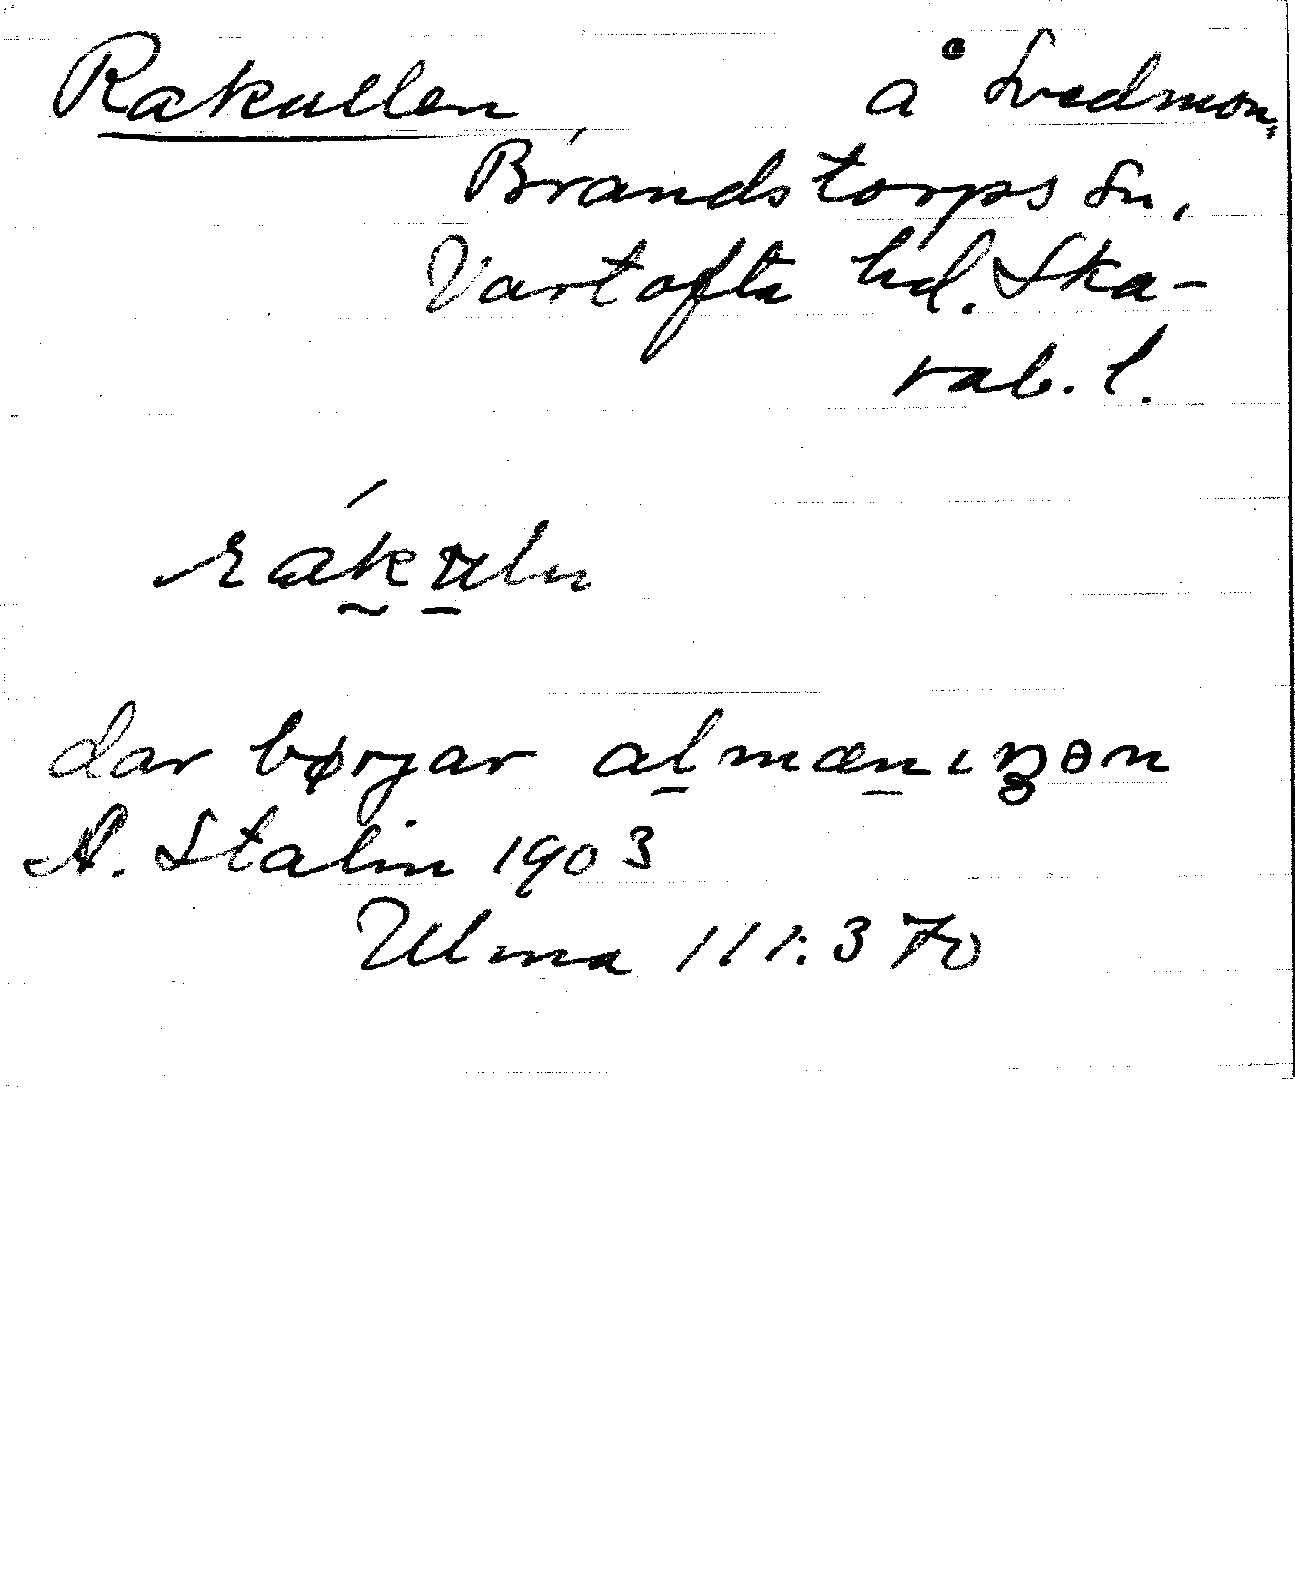 Rakullen å Svedmon,
Brandstorps sn.
Vartofta hd. Ska-
rab. l.
dar børjar almænıŋən
A. Stalin 1903
Ulma 111:370